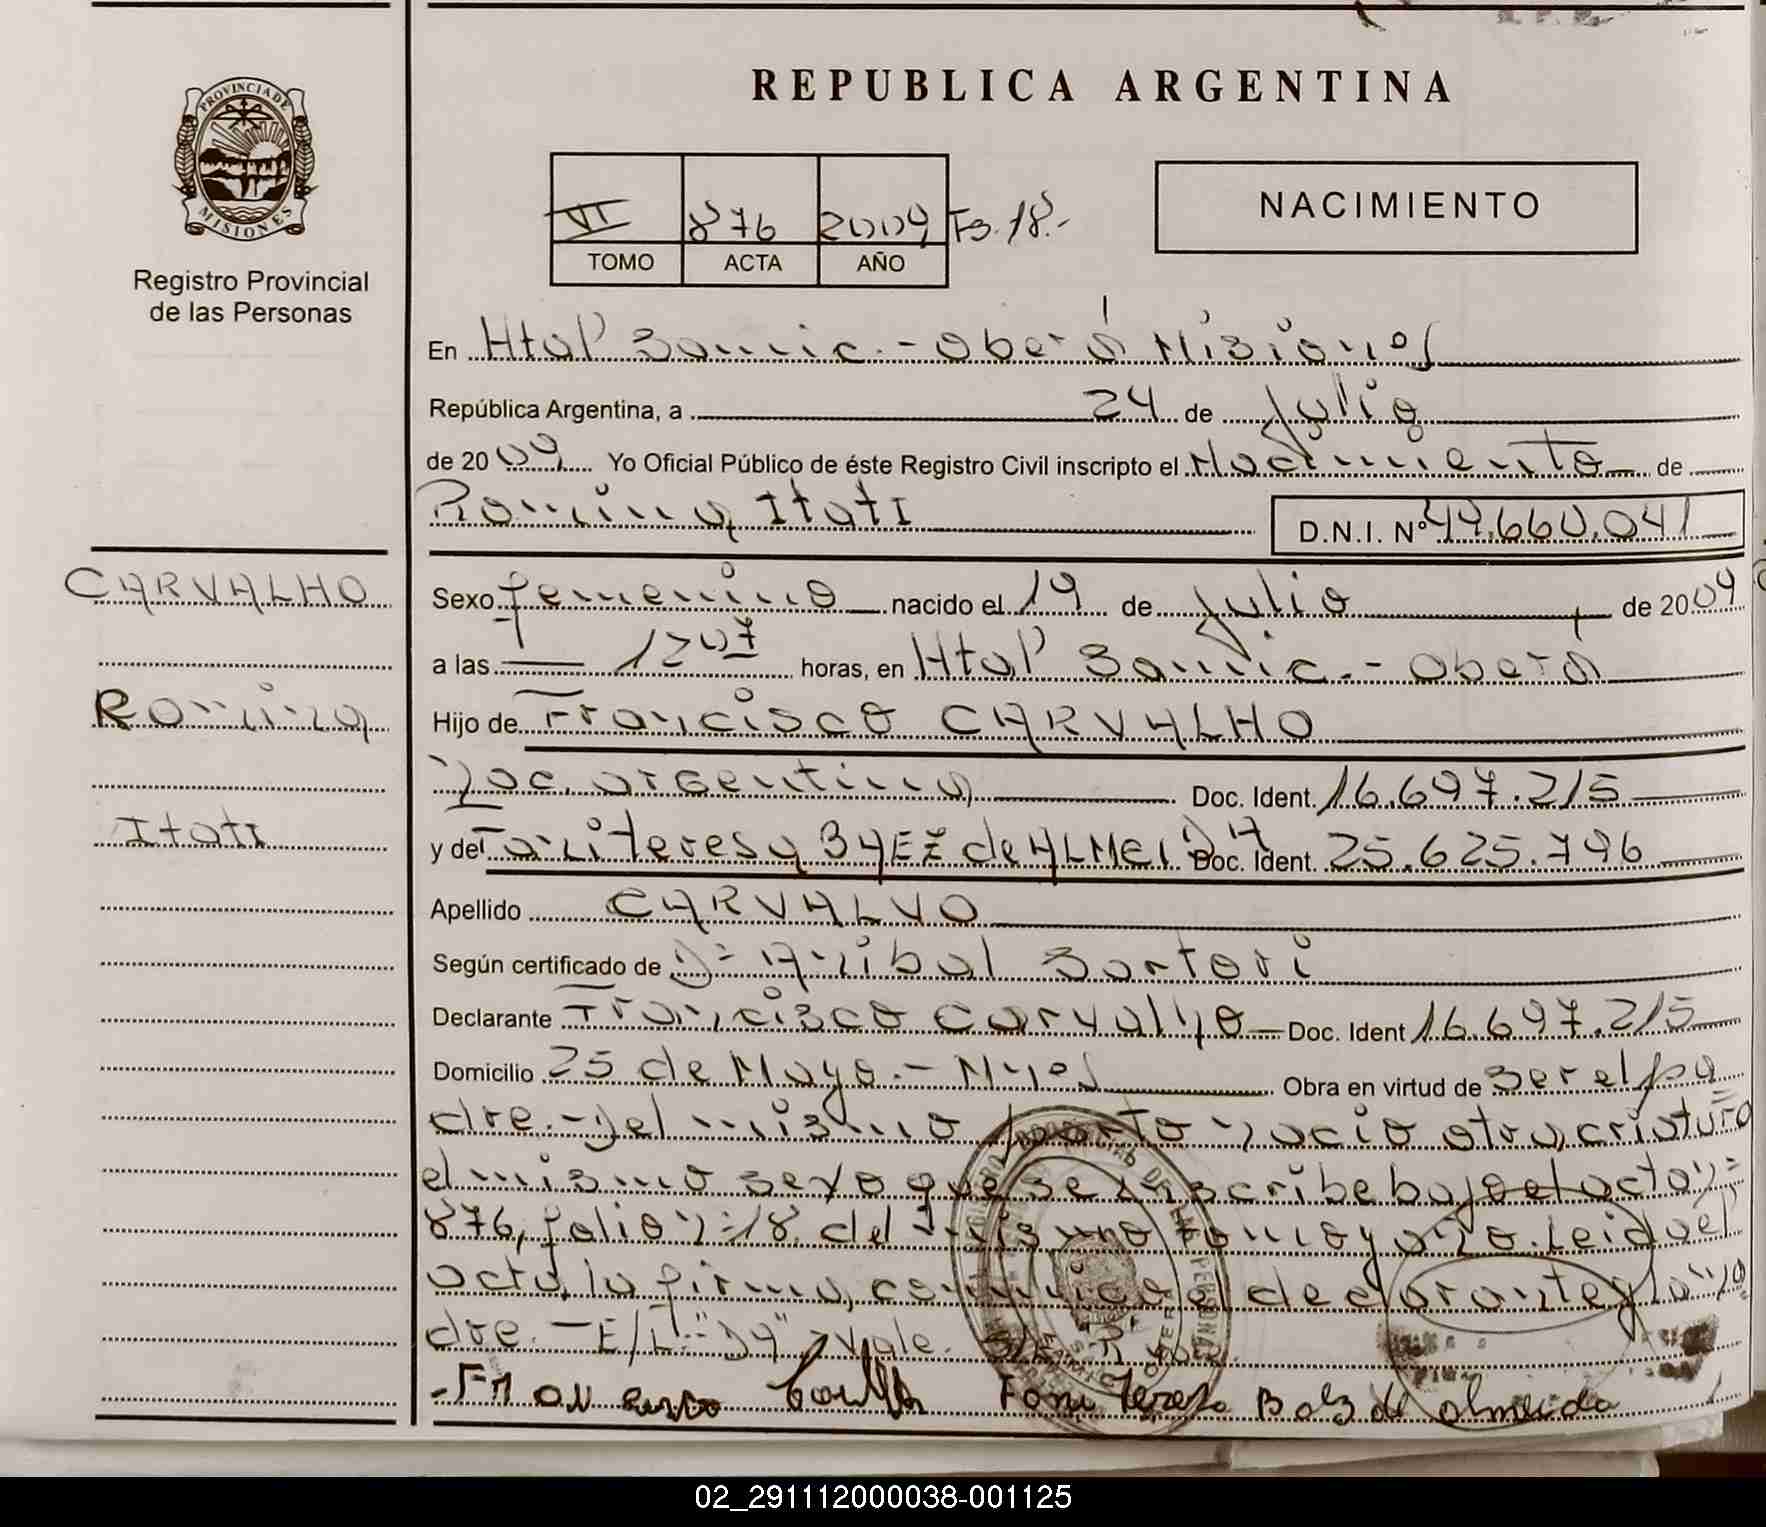 REPUBLICA ARGENTINA
PROVINCIA DE MISIONES
Registro Provincial
de las Personas
VI 876 2009 Fs. 18.-
TOMO ACTA AÑO
NACIMIENTO
En Htal Samic.- Oberá Misiones
República Argentina, a 24 de Julio
de 2009 Yo Oficial Público de éste Registro Civil inscripto el Nacimiento de
Romina Itati D.N.I. Nº 49.660.041
CARVALHO
Romina
Itati
Sexo femenino nacido el 19 de Julio de 2009
a las 1207 horas, en Htal Samic.- Oberá
Hijo de Francisco CARVALHO
nac. argentina Doc. Ident. 16.697.215
y de Fani teresa BAEZ de ALMEIDA Doc. Ident. 25.625.796
Apellido CARVALVO
Según certificado de Anibal Sartori
Declarante Francisco Carvalho Doc. Ident 16.697.215
Domicilio 25 de Mayo.- Mnes Obra en virtud de ser el pa
dre.- Del mismo parto nacio otra criatura
el mismo sexo que se inscribe bajo el acta n=
876, folio n=18 del mismo tomo y año. Leida el
acta, la firma, conmigo el declarante y la ma
dre.- E/L: "DA" Vale.
Fran Carvalho Fani Teresa Baez de Almeida
02_291112000038-001125